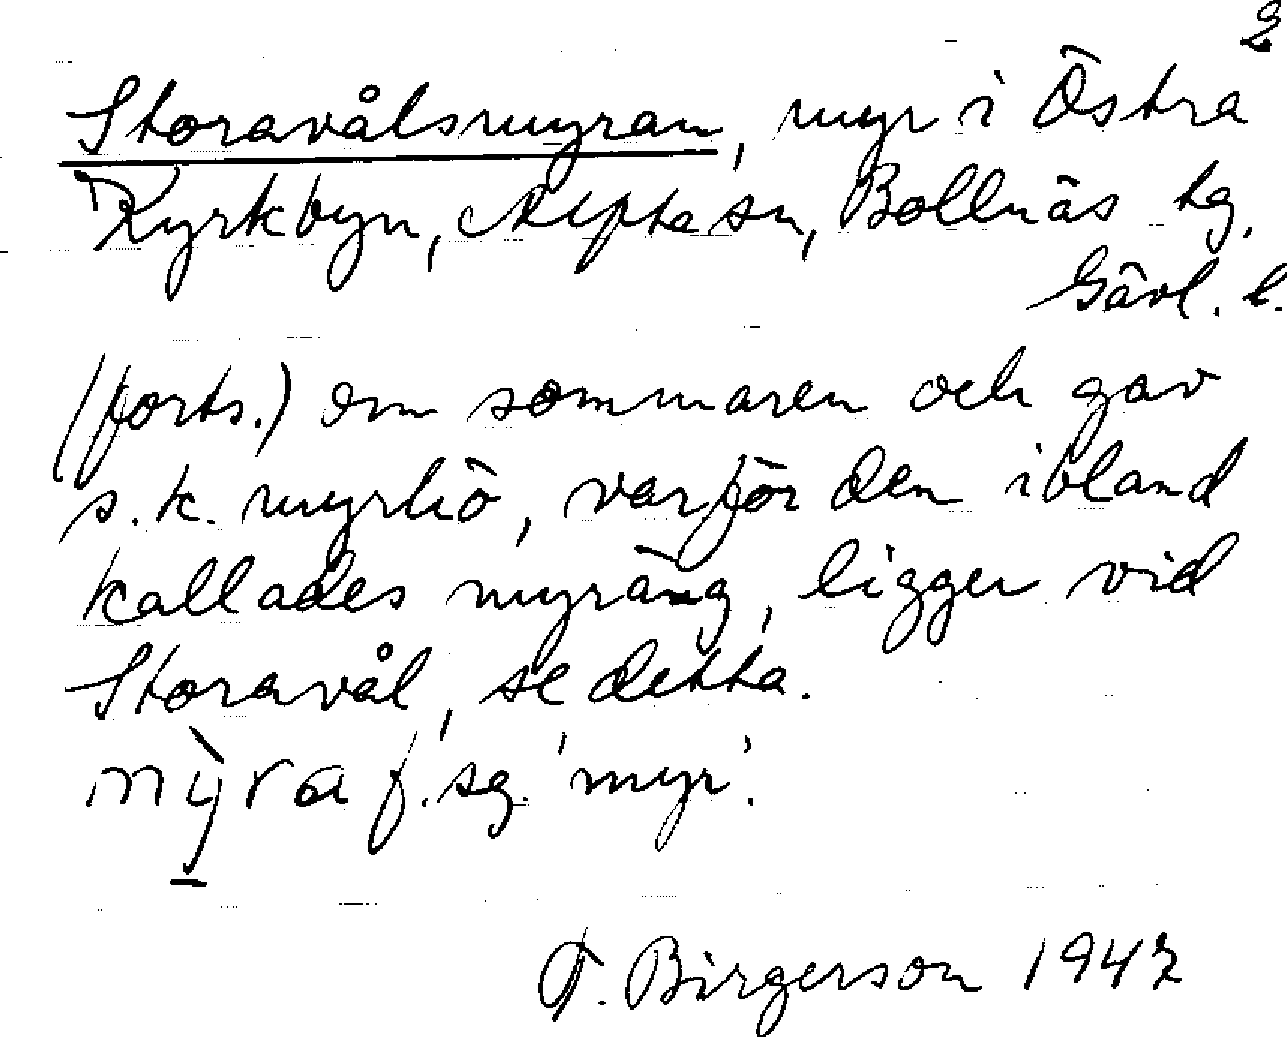 2
Storavålsmyran, myr i Östra
Kyrkbyn, Alfta sn, Bollnäs tg.
Gävl. l.
(forts.) om sommaren och gav
s.k. myrhö, varför den ibland
kallades myräng, ligger vid
Storavål, se detta.
mỳra f. sg. 'myr'.
T. Birgerson 1947